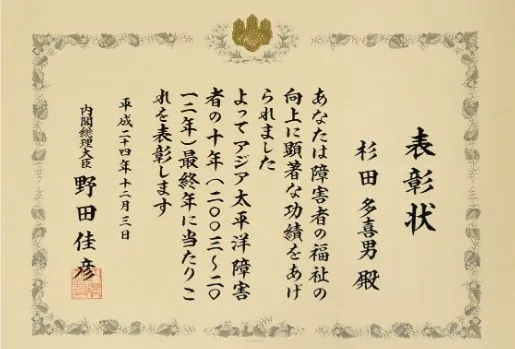 表彰状
杉田多喜男殿
あなたは障害者の福祉の
向上に顕著な功績をあげ
られました
よってアジア太平洋障害
者の十年(二〇〇三～二〇
一二年)最終年に当たりこ
れを表彰します
平成二十四年十二月三日
内閣総理大臣 野田佳彦